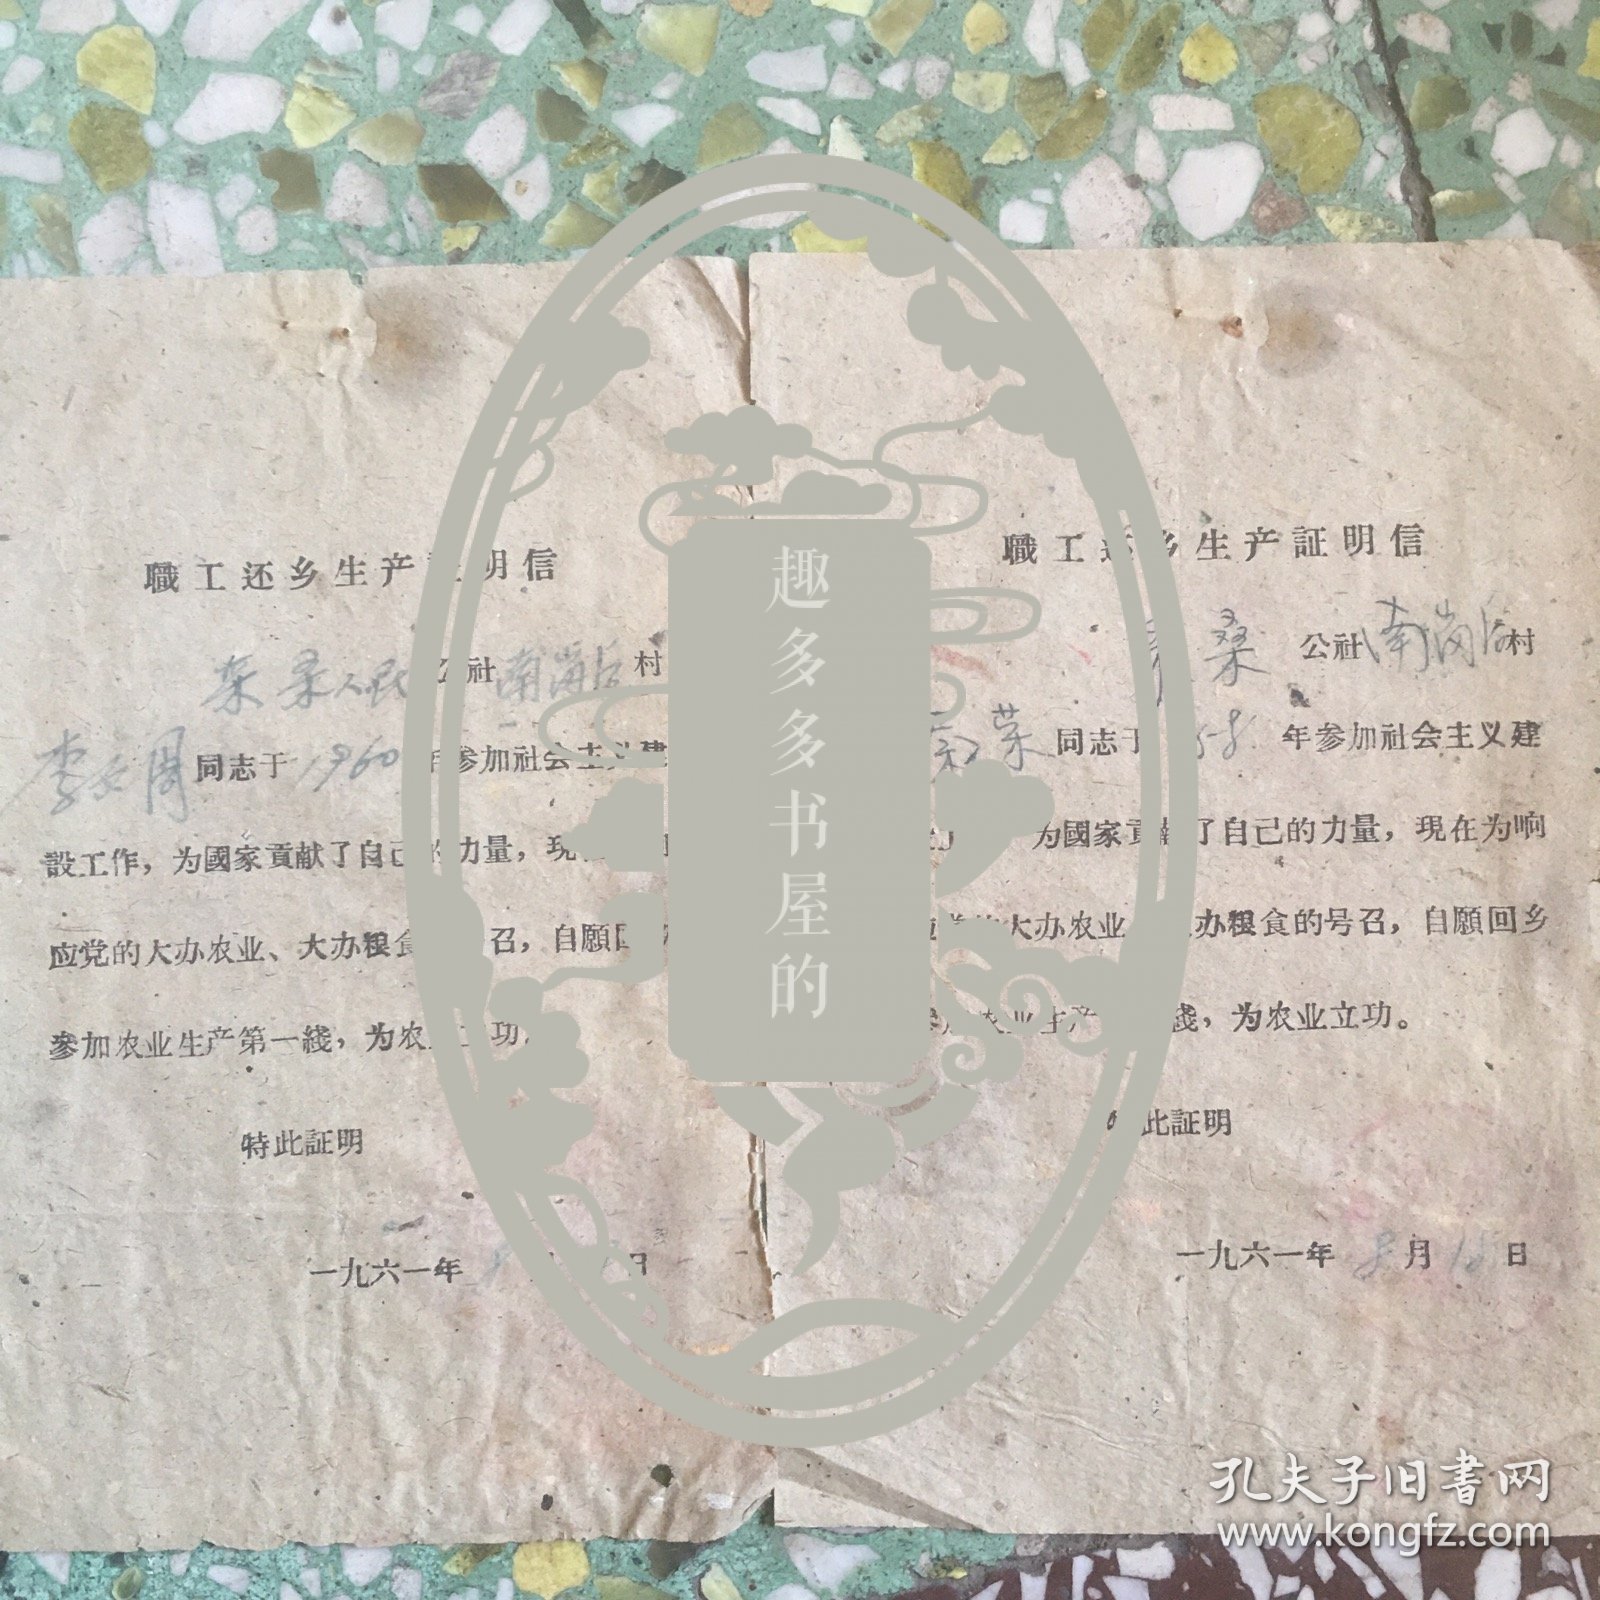 職工还乡生产証明信
公社 村
同志于 1960 年参加社会主义建
設工作，为國家貢献了自己的力量，現在
应党的大办农业、大办粮食 召，自願回
参加农业生产第一綫，为农 功
特此証明
一九六一年 8 日
職工还乡生产証明信
桑 公社 南崗 村
荣 同志于 年参加社会主义建
为國家貢献了自己的力量，現在为响
大办农业 办粮食的号召，自願回乡
农业生产 綫，为农业立功。
此証明
一九六一年 8 月 18 日
趣多多书屋的
孔夫子旧書网
www.kongfz.com